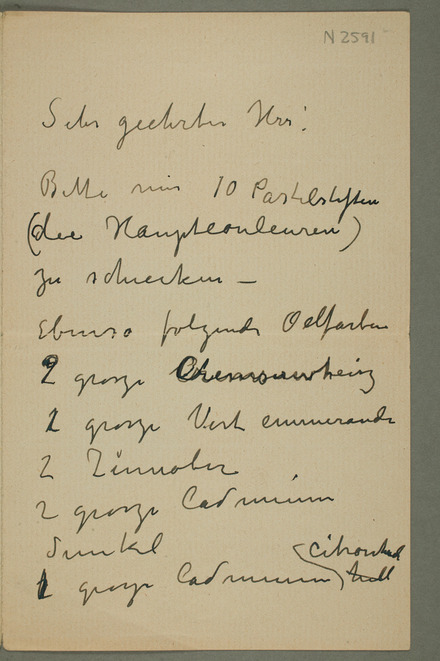 N 2591
Sehr geehrter Herr!
Bitte mir 10 Pastelstiften
(die Hauptcouleuren)
zu schicken –
Ebenso folgende Oelfarben
2 grosze Cremserweiss
1 grosze Vert emmeraude
2 Zinnober
2 grosze Cadmium
dunkel
1 grosze Cadmium citron
hell